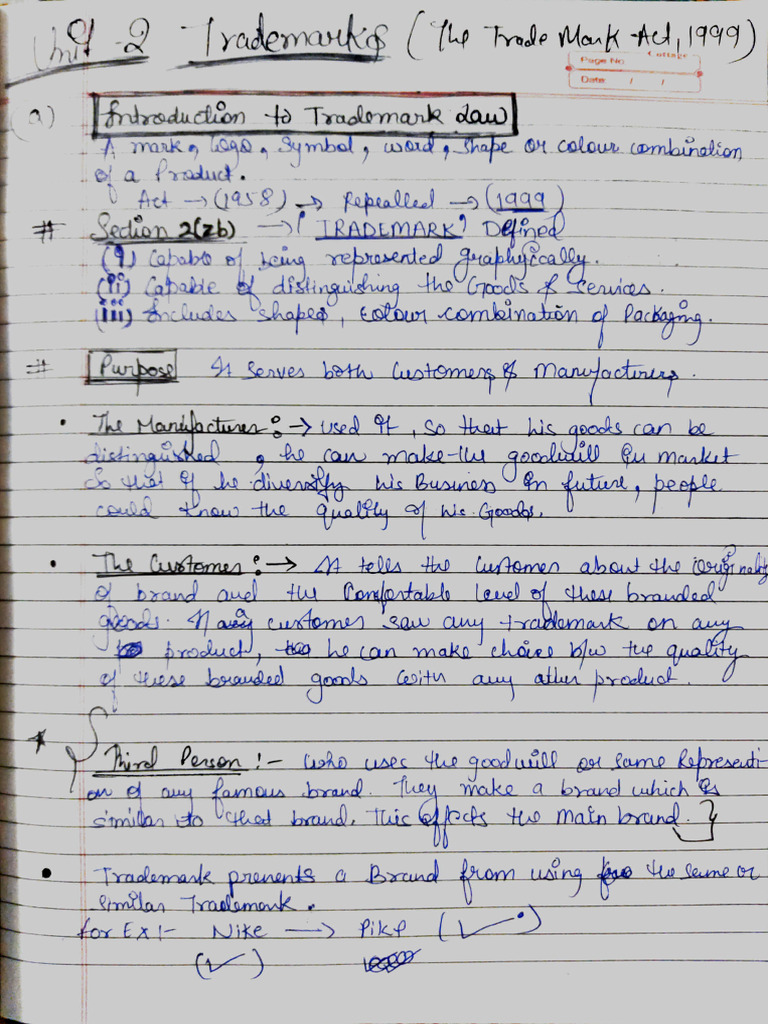 Unit-2 Trademarks (The Trade Mark Act, 1999)
Cottage
Page No.
Date: / /
(a) Introduction to Trademark Law
A mark, logo, symbol, word, shape or colour combination
of a Product.
Act → (1958) → Repealled → (1999)
# Section 2(zb) → 'TRADEMARK' Defined
(i) Capable of being represented graphyically.
(ii) Capable of distinguishing the Goods & Services.
(iii) Includes shapes, colour combination of Packaging.
# Purpose It serves both Customers & Manufacturers.
• The Manufacturer :→ used it, so that his goods can be
distinguished, he can make the goodwill in market
So that if he diversify his Business in future, people
could know the quality of his Goods.
• The Customer :→ It tells the Customer about the Originality
of brand and the Comfortable level of these branded
goods. If any customer saw any trademark on any
product, he can make choice b/w the quality
of these branded goods with any other product.
* Third Person :- Who uses the goodwill or same Representi-
on of any famous brand. They make a brand which is
similar to that brand. This effects the main brand.
• Trademark prevents a Brand from using the same or
similar Trademark.
for Ex :- Nike → Pike (✓)
(✓)